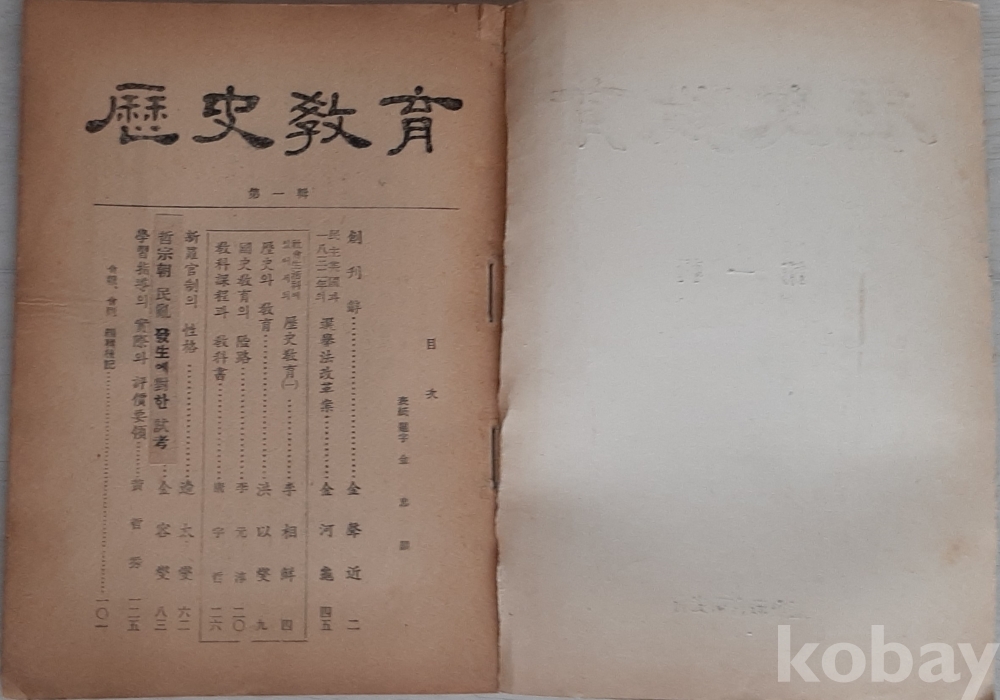 歷史敎育
第一輯
目次
表紙題字 金忠顯
創刊辭 金聲近 二
民主英國과 一八三二年의 選擧法改革案 金河龜 四五
社會生活科에 있어서의 歷史敎育(一) 李相鮮 四
歷史와 敎育 洪以燮 九
國史敎育의 隘路 李元淳 二〇
敎科課程과 敎科書 字哲 二六
新羅官制의 性格 邊太燮 六二
哲宗朝 民亂 發生에 對한 試考 金容燮 八三
學習指導의 實際와 評價要領 黃哲秀 一二五
會報、會則 編輯後記 一〇一
kobay